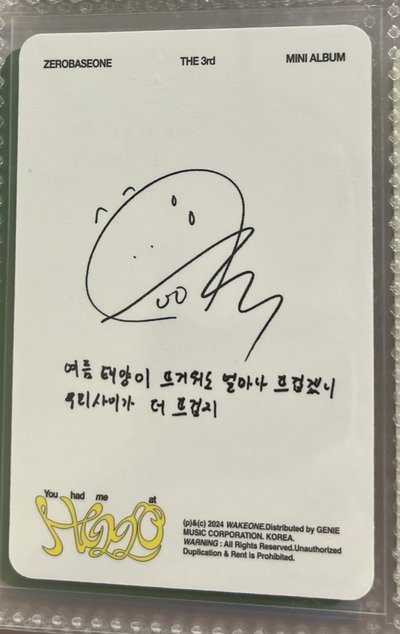 ZEROBASEONE THE 3rd MINI ALBUM
여름 태양이 뜨거워도 얼마나 뜨겁겠니
우리사이가 더 뜨겁지
You had me at
HELLO
(p)&(c) 2024 WAKEONE.Distributed by GENIE
MUSIC CORPORATION. KOREA.
WARNING : All Rights Reserved.Unauthorized
Duplication & Rent is Prohibited.